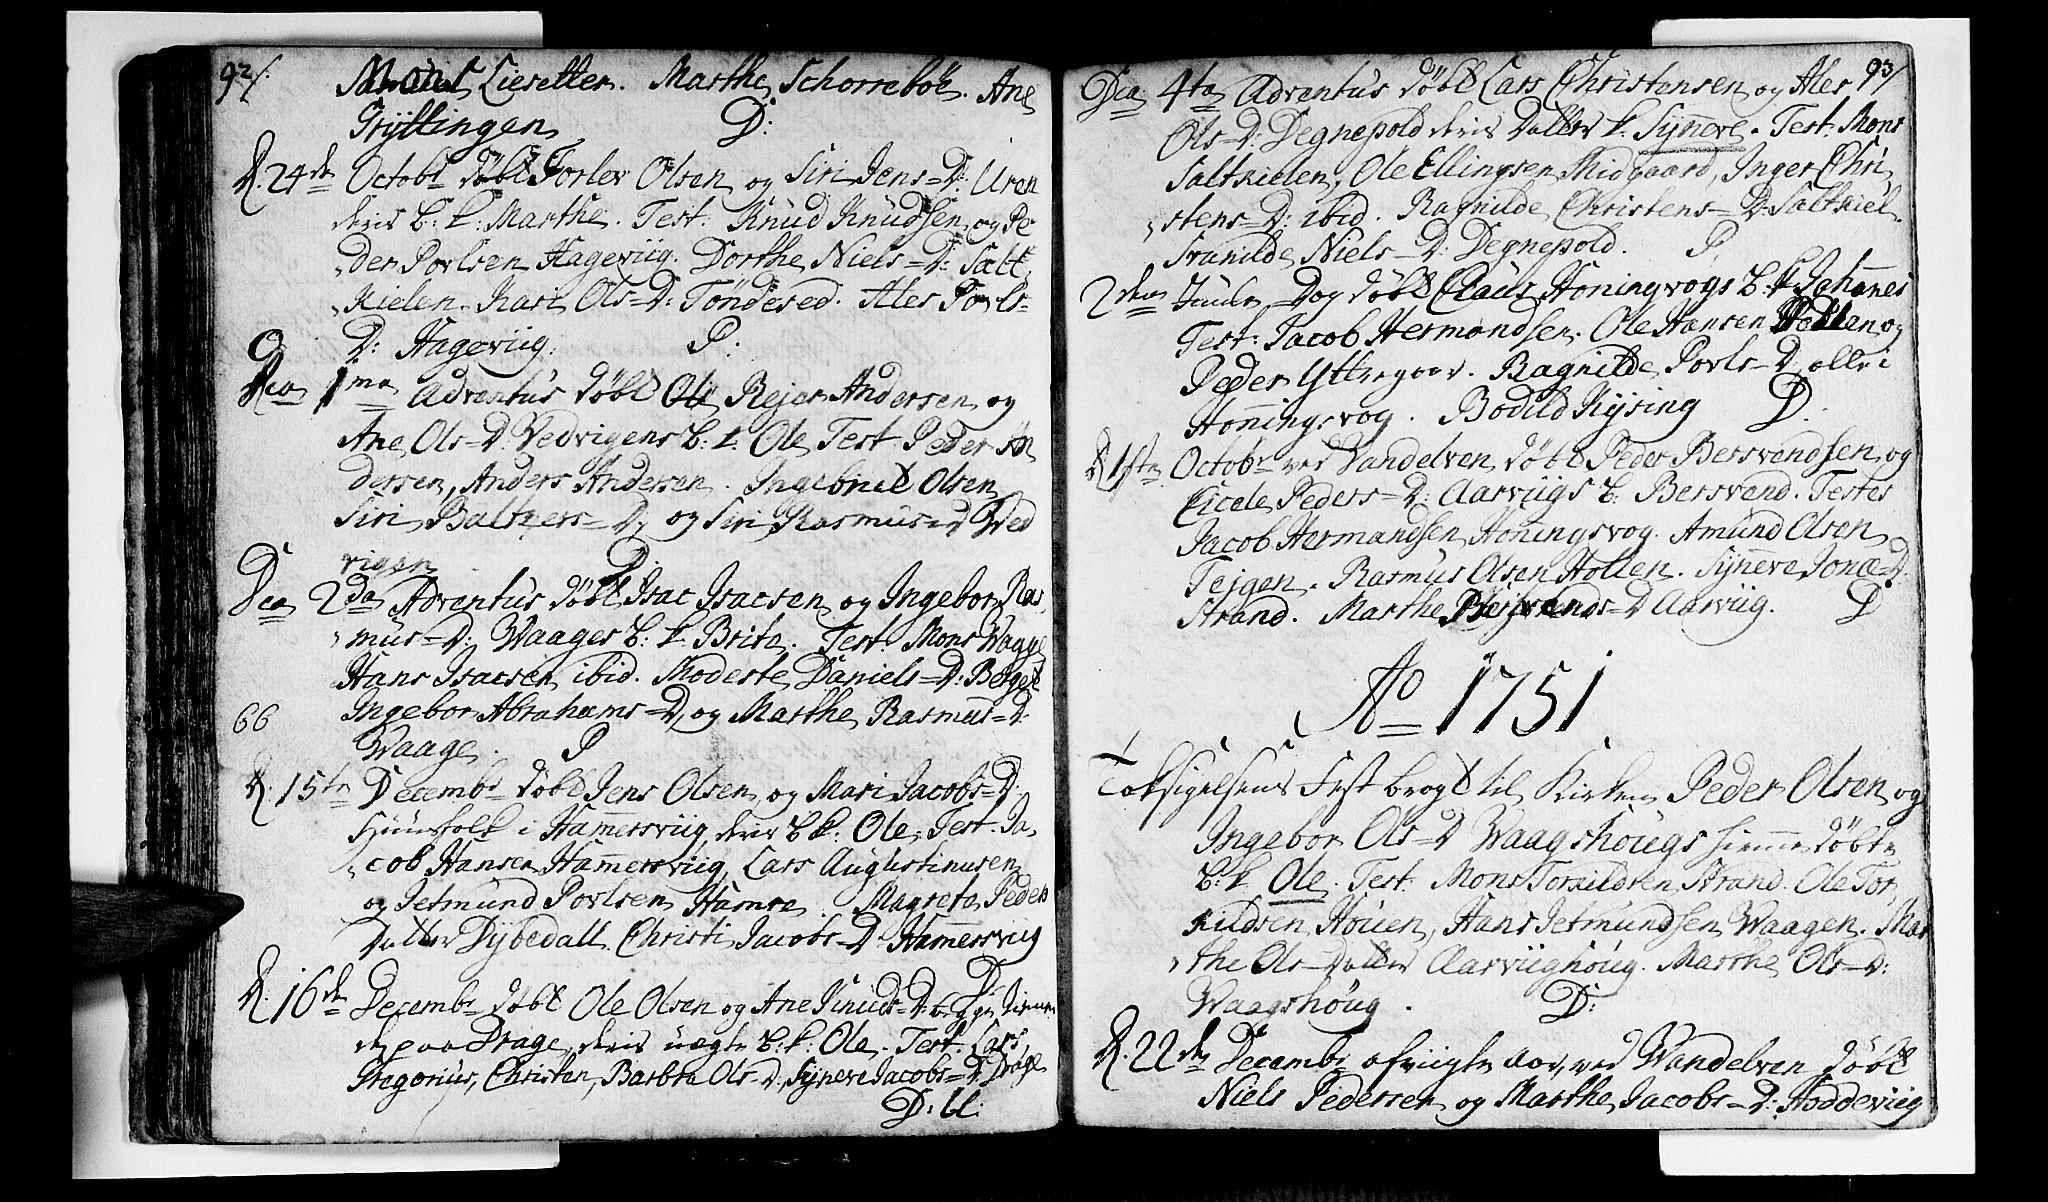 92/.
Liesetter. Marthe Schorrebøe. Ane
Gryttingen D:
D. 24de Octobr døbt Torlev Olsen og Siri Jens=D: Uren
deris b: k: Marthe. Test: Knud Knudsen og Pe
der Povlsen Hageviig. Dorthe Niels=D: Salt
kielen. Kari Ols=D: Tøndesed. Ales Povls=
D: Hageviig. P:
Dca 1ma Adventus døbt Rejer Andersen og
Ane Ols=D: Vedvigens b: k. Ole Test Peder An
dersen, Anders Andersen. Ingebret Olsen
Siri Baltzers=D: og Siri Rasmus=D Wed
vigen D:
Dca 2da Adventus døbt Isac Isacsen og Ingebor Ras
mus=D: Waages b: k Brita. Test: Mons Waage
Hans Isacsen ibid. Modeste Daniels=D: Berget
Ingebor Abrahams=D, og Marthe Rasmus=D:
66
Waage. P
D. 15tn Decembr døbt Jens Olsen og Mari Jacobs=D:
Huusfolk i Hammersviig, deris b k: Ole, Test. Ja
cob Hansen Hammersviig, Lars Augustinusen
og Jetmund Povlsen Hamre. Magreta Peders
Datter Dybedall. Christi Jacobs=D: Hammersviig
D:
D. 16de Decembr døbt Ole Olsen og Ane Knuds=D: begge tienen
de paa Drage, deris uægte b: k: Ole. Test. Lars,
Gregorius, Christen, Barbra Ols=D, Syneve Jacobs=D: Drage
D: U:
93/
Dca 4ta Adventus døbt Lars Christensen og Ales
Ols=D: Degnepold deris Datter k. Synneve. Test: Mons
Saltkielen, Ole Ellingsen Midgaard, Inger Chri
stens=D: ibid. Ragnilde Christens=D Saltkiel.
Gunilde Niels=D: Degnepold. P
2den Juule Dag døbt Claus Honingvogs b. k Johannes
Test: Jacob Hermandsen. Ole Hansen Hollen og
Peder Ytregaar. Ragnilde Povls=D alle i
Honningsvog. Bodild Kysing D.
D 1ste Octobr ved Vandelven døbt Peder Bersvendsen og
Cicele Peders=D: Aarviigs b: Bersvend. Testes
Jacob Hermandsen Honningsvog. Amund Olsen
Tejgen. Rasmus Olsen Hollen. Synneve Jonæ=D:
Strand. Marthe Bersvends=D Aarviig. D
Ao 1751
Taksigelsens Fest bragt til Kirken Peder Olsen og
Ingebor Ols=D Waagshougs hiemme døbte
b: k Ole. Test: Mons Torkildsen Strand. Ole Tor
kildsen Houen, Hans Jetmundsen Waagen. Mar
the Ols=Datter Aarviighoug. Marthe Ols=D:
Waagshoug. D:
D. 22de Decembr afvigte aar, ved Wandelven døbt
Niels Pedersen og Marthe Jacobs=D: Hoddeviig